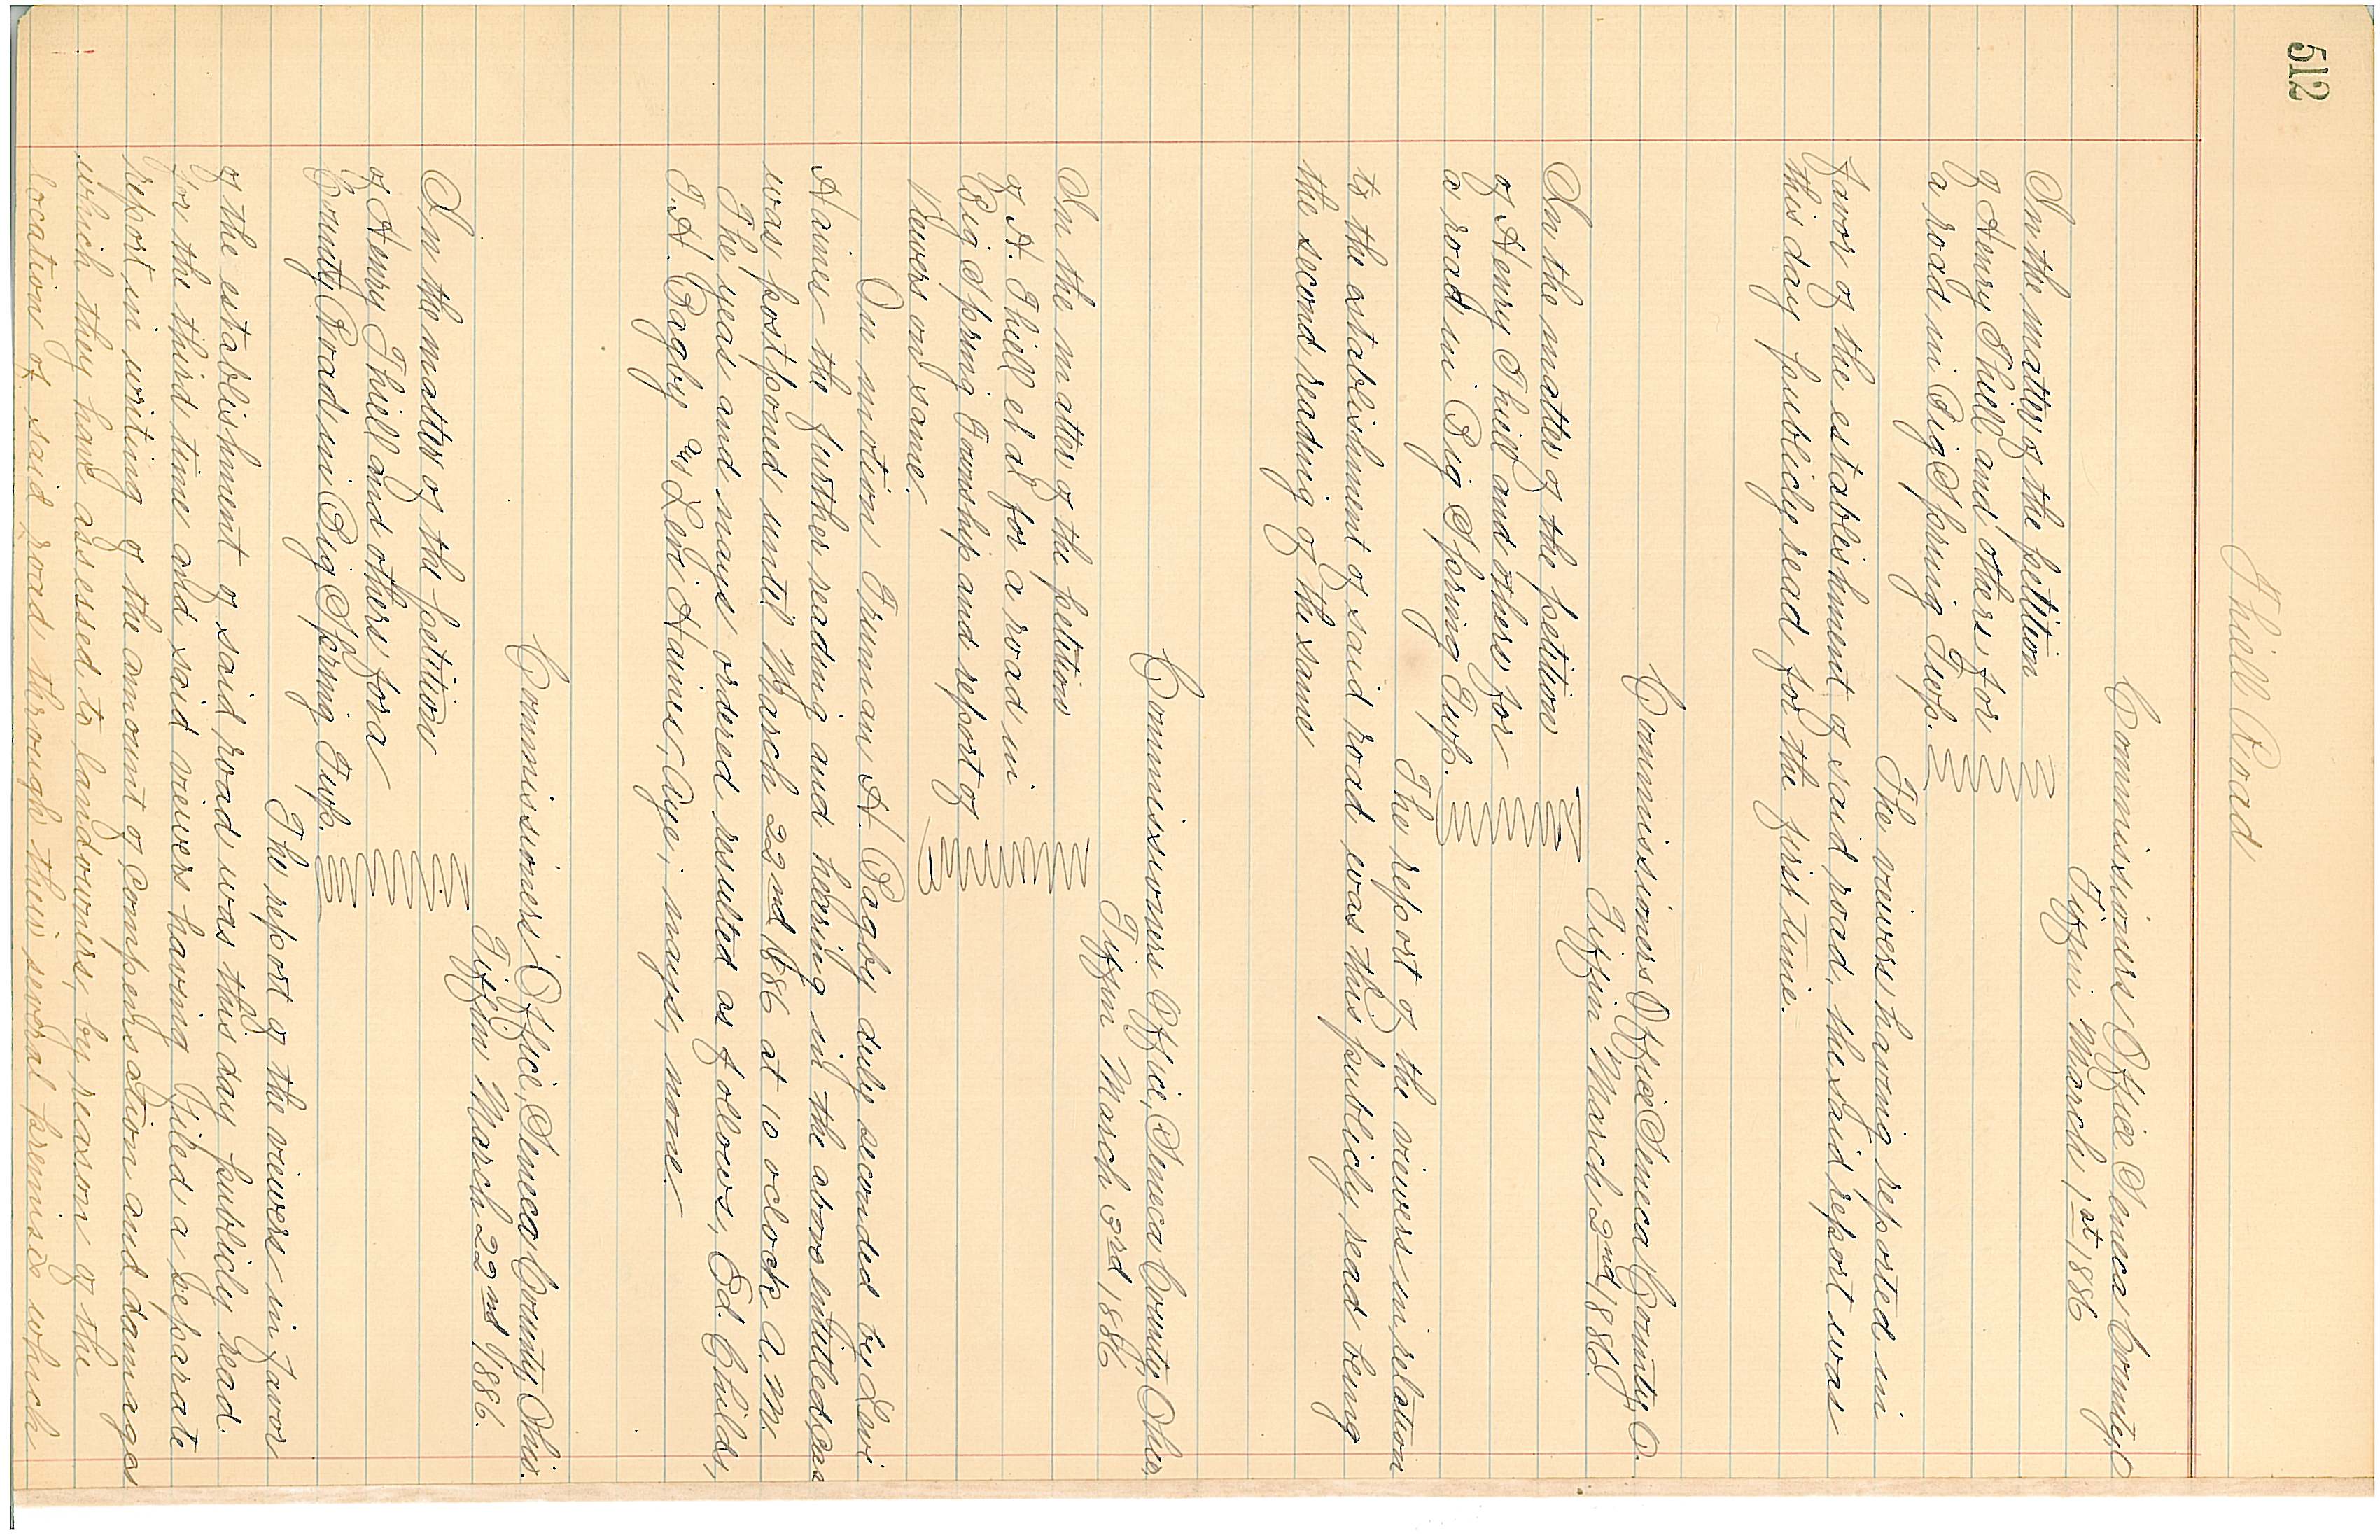 512
Thiell Road
Commissioners Office Seneca County, O
Tiffin March 1st 1886
In the matter of the petition
of Henry Thiell and others for
a road in Big Spring Twp.
The viewers having reported in
favor of the establishment of said road, the said report was
this day publicly read for the first time.
Commissioners Office Seneca County, O.
Tiffin March 2nd 1886.
In the matter of the petition
of Henry Thiell and others for
a road in Big Spring Twp.
The report of the viewers in relation
to the establishment of said road was this publicly read being
the second reading of the same
Commissioners Office, Seneca County, Ohio,
Tiffin March 3rd 1886
In the matter of the petition
of H. Thiell et al for a road in
Big Spring Township and report of
Viewers on same.
On motion Truman H. Bagby duly seconded by Levi
Haines the further reading and hearing in the above entitled, cas
was postponed until March 22nd 1886 at 10 oclock A. M.
The yeas and nays ordered resulted as follows, Ed. Childs,
T. H. Bagby and Levi Haines, Aye; nays, none.
Commissioners' Office, Seneca County, Ohio.
Tiffin March 22nd 1886.
In the matter of the petition
of Henry Thiell and others for a
County Road in Big Spring Twp.
The report of the viewers in favor
of the establishment of said road was this day publicly read.
for the third time and said viewers having filed a separate
report in writing of the amount of compensation and damages
which they have assessed to landowners, by reason of the
location of said road through their several premises which